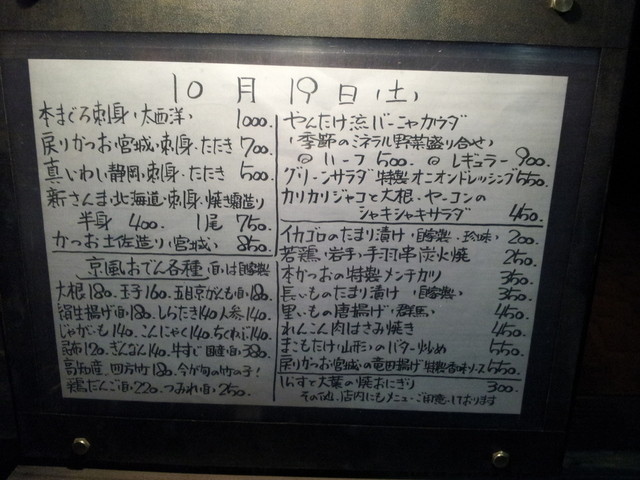 10月19日(土)
本まぐろ刺身(大西洋) 1000.
戻りかつお(宮城)刺身・たたき 700.
真いわし(静岡)刺身・たたき 500.
新さんま(北海道)刺身・焼き霜造り
半身 400. 1尾 750.
かつお土佐造り(宮城) 850
京風おでん各種 (自)は自家製
大根180. 玉子160. 五目京がんも(自)180.
絹生揚げ(自)180. しらたき140. 人参140.
じゃがいも140. こんにゃく140. ちくわぶ140.
昆布120. ぎんなん140. 牛すじ(国産)(自)380.
高知産 四方竹180. 今が旬の竹の子!
鶏だんご(自)220. つみれ(自)250.
やんたけ流バーニャカウダ
(季節のミネラル野菜盛り合せ)
◎ハーフ500. ◎レギュラー900.
グリーンサラダ特製オニオンドレッシング550.
カリカリジャコと大根・ヤーコンの
シャキシャキサラダ 450.
イカゴロのたまり漬け(自家製・珍味) 200.
若鶏(岩手)手羽串炭火焼 250.
本かつおの特製メンチカツ 350
長いものたまり漬け(自家製) 350
里いもの唐揚げ(群馬) 450.
れんこん肉はさみ焼き 450.
まこもたけ(山形)のバター炒め 550.
戻りかつお(宮城)の竜田揚げ特製香味ソース550.
しらすと大葉の焼おにぎり 300.
その他、店内にもメニューご用意しております